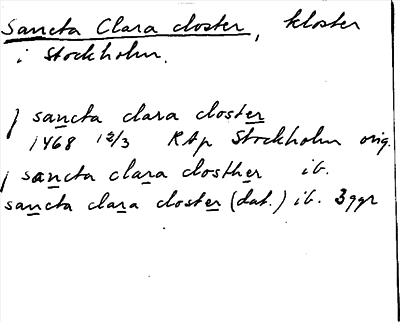 Sancta Clara closter, kloster
i Stockholm.
j sancta clara closter
1468 12/3 RAp Stockholm orig.
j sancta clara closther ib.
sancta clara closter (dat.) ib. 3 ggr